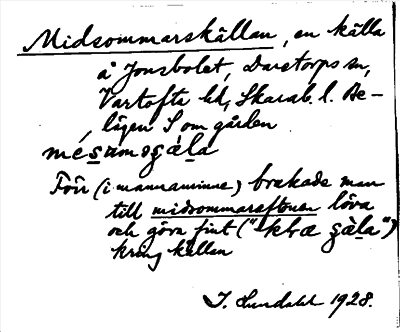 Midsommarskällan, en källa
å Jonsbolet, Daretorps sn,
Vartofta hd, Skarab. l. Be-
lägen S om gården
mésumsgàla
Förr (i mannaminne) brukade man
till midsommaraftonen löva
och göra fint ("klæ gàla")
kring källan
J. Lundahl 1928.